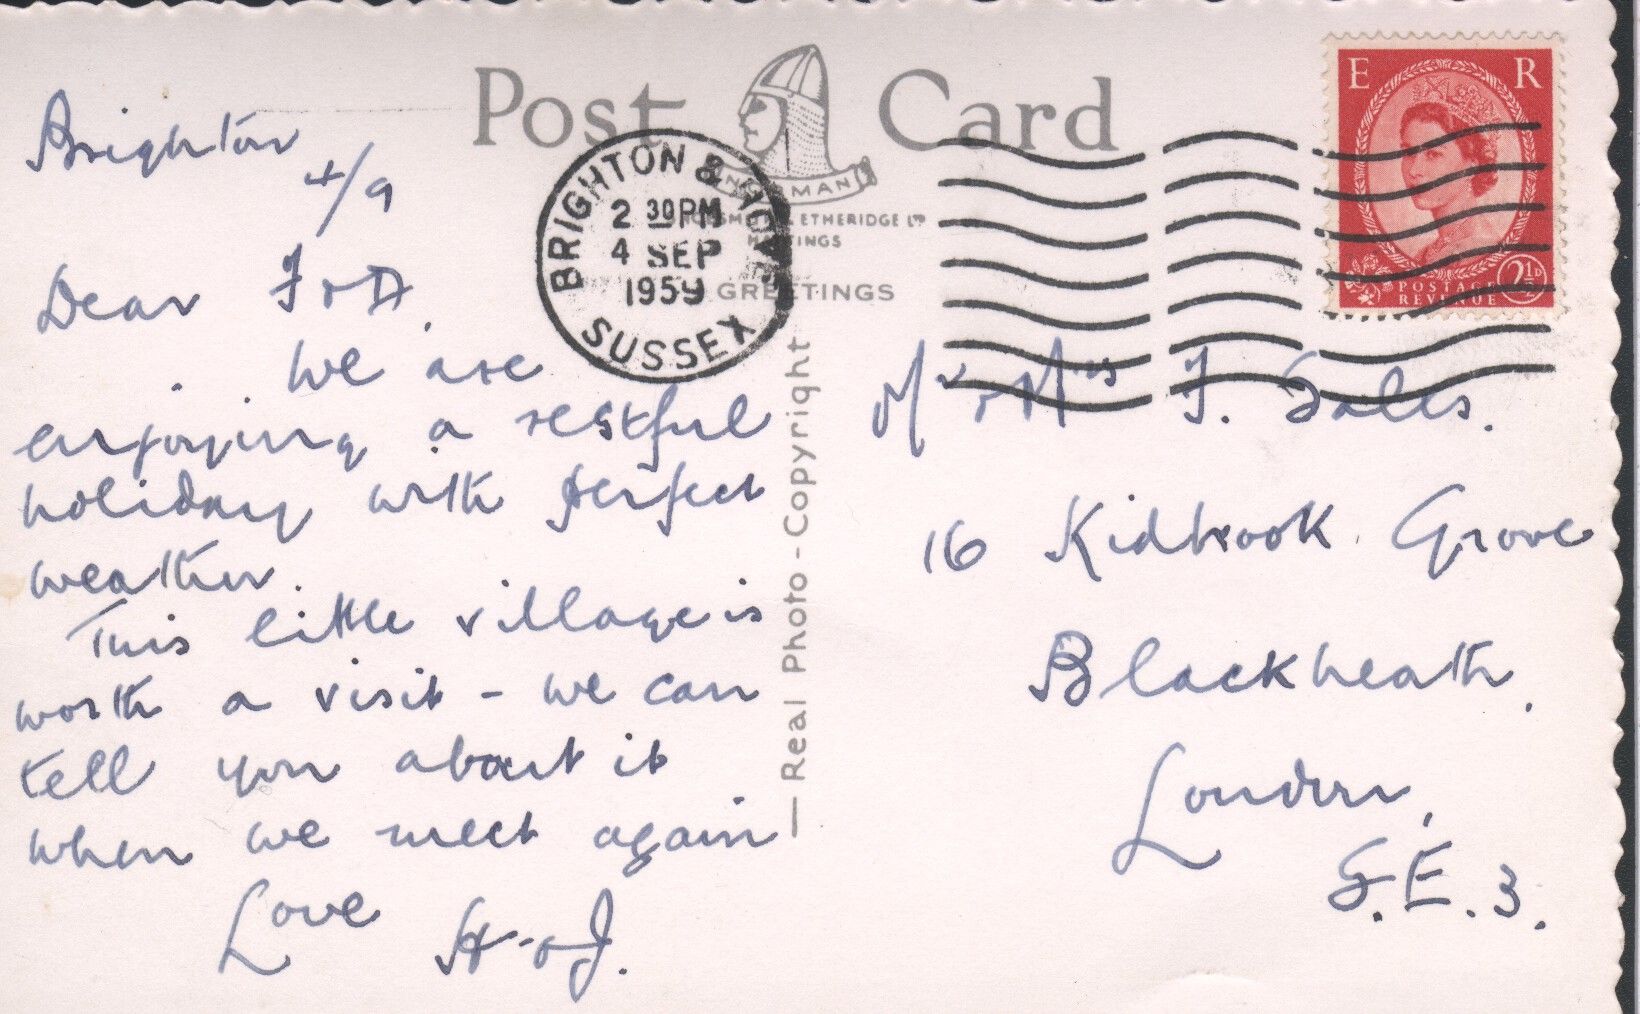 Post Card
NORMAN
SHOESMITH & ETHERIDGE LTD
HASTINGS
GREETINGS
BRIGHTON & HOVE
2 30 PM
4 SEP
1959
SUSSEX
E R
POSTAGE
REVENUE
2½D
Brighton
4/9
Dear F & D,
We are
enjoying a restful
holiday with perfect
weather.
This little village is
worth a visit - we can
tell you about it
when we meet again
Love H. & J.
— Real Photo - Copyright —
Mr & Mrs F. Sales.
16 Kidbrook Grove
Blackheath.
London,
S.E.3.